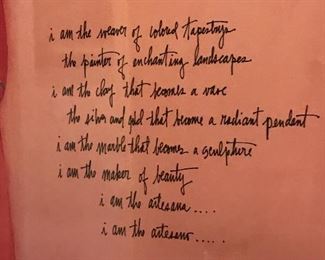 i am the weaver of colored tapestrys
the painter of enchanting landscapes
i am the clay that becomes a vase
the silver and gold that become a radiant pendant
i am the marble that becomes a sculpture
i am the maker of beauty
i am the artesana ....
i am the artesano ....